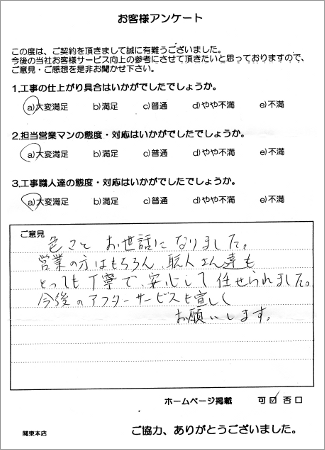 お客様アンケート
この度は、ご契約を頂きまして誠に有難うございました。
今後の当社お客様サービス向上の参考にさせて頂きたいと思っておりますので、
ご意見・ご感想を是非お聞かせ下さい。
1.工事の仕上がり具合はいかがでしたでしょうか。
a)大変満足 b)満足 c)普通 d)やや不満 e)不満
2.担当営業マンの態度・対応はいかがでしたでしょうか。
a)大変満足 b)満足 c)普通 d)やや不満 e)不満
3.工事職人達の態度・対応はいかがでしたでしょうか。
a)大変満足 b)満足 c)普通 d)やや不満 e)不満
ご意見
色々とお世話になりました。
営業の方はもちろん、職人さん達も
とっても丁寧で、安心して任せられました。
今後のアフターサービスも宜しく
お願いします。
ホームページ掲載 可☑ 否□
関東本店
ご協力、ありがとうございました。